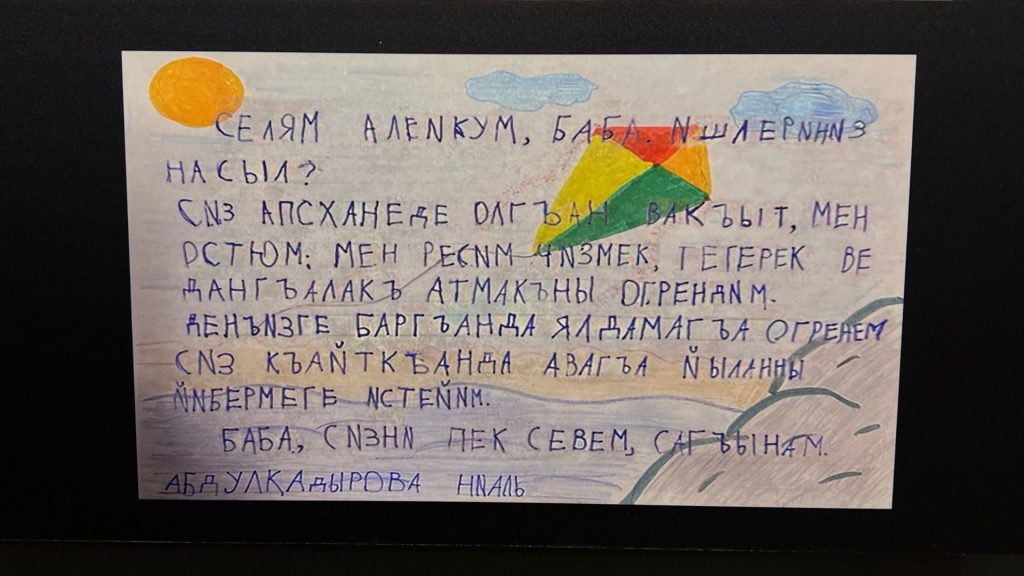 СЕЛЯМ АЛЕИКУМ, БАБА. ИШЛЕРИНИЗ
НАСЫЛ?
СИЗ АПСХАНЕДЕ ОЛГЪАН ВАКЪЫТ, МЕН
ОСТЮМ: МЕН РЕСИМ ЧИЗМЕК, ТЕГЕРЕК ВЕ
ДАНГЪАЛАКЪ АТМАКЪНЫ ОГРЕНДИМ.
ДЕНЪИЗГЕ БАРГЪАНДА ЯЛДАМАГЪА ОГРЕНЕМ
СИЗ КЪАЙТКЪАНДА АВАГЪА ЙЫЛАННЫ
ЙИБЕРМЕГЕ ИСТЕЙИМ.
БАБА, СИЗНИ ПЕК СЕВЕМ, САГЪЫНАМ.
АБДУЛҚАДЫРОВА НИАЛЬ